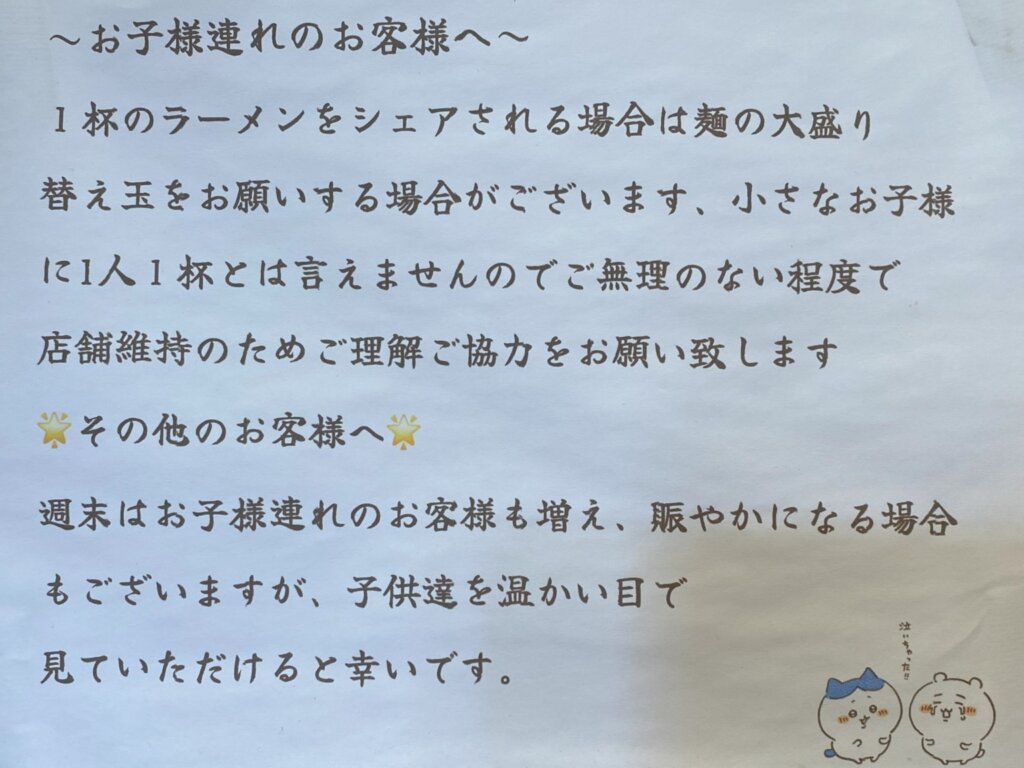 ～お子様連れのお客様へ～
１杯のラーメンをシェアされる場合は麺の大盛り
替え玉をお願いする場合がございます、小さなお子様
に1人１杯とは言えませんのでご無理のない程度で
店舗維持のためご理解ご協力をお願い致します
🌟その他のお客様へ🌟
週末はお子様連れのお客様も増え、賑やかになる場合
もございますが、子供達を温かい目で
見ていただけると幸いです。
泣いちゃった!!